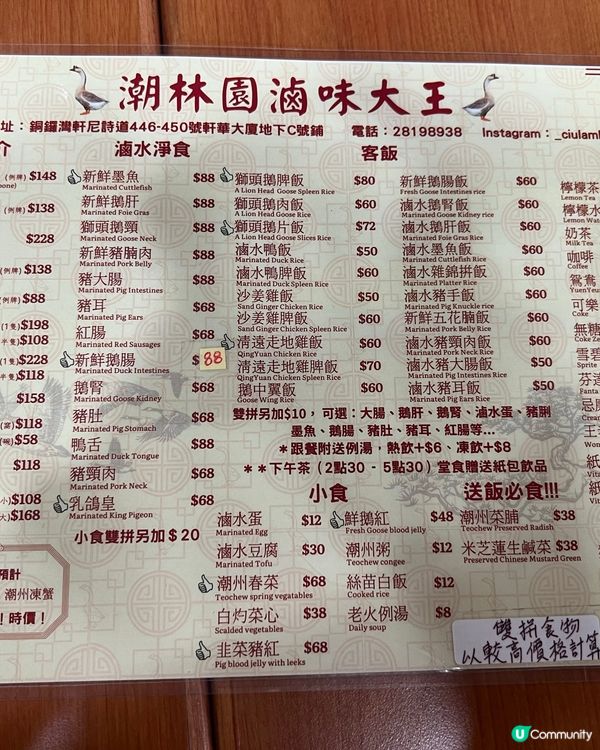 潮林園滷味大王
址：銅鑼灣軒尼詩道446-450號軒華大廈地下C號鋪 電話：28198938 Instagram：_ciulaml
介
(例牌) $148
bone)
(例牌) $138
$228
(例牌) $138
(例牌) $88
(1隻) $198
半隻) $108
(1隻) $228
半隻) $118
(窩) $158
(碗) $58
$118
小) $108
大) $168
預計
潮州凍蟹
！時價！
滷水淨食
新鮮墨魚 $88
Marinated Cuttlefish
新鮮鵝肝 $88
Marinated Foie Gras
獅頭鵝頸 $88
Marinated Goose Neck
新鮮豬腩肉 $88
Marinated Pork Belly
豬大腸 $88
Marinated Pig Intestines
豬耳 $68
Marinated Pig Ears
紅腸 $68
Marinated Red Sausages
新鮮鵝腸 $88
Marinated Duck Intestines
鵝腎 $68
Marinated Goose Kidney
豬肚 $68
Marinated Pig Stomach
鴨舌 $88
Marinated Duck Tongue
豬頸肉 $68
Marinated Pork Neck
乳鴿皇 $68
Marinated King Pigeon
小食雙拼另加$20
客飯
獅頭鵝脾飯 $80
A Lion Head Goose Spleen Rice
獅頭鵝肉飯 $60
A Lion Head Goose Rice
獅頭鵝片飯 $72
A Lion Head Goose Slices Rice
滷水鴨飯 $50
Marinated Duck Rice
滷水鴨脾飯 $60
Marinated Duck Spleen Rice
沙姜雞飯 $50
Sand Ginger Chicken Rice
沙姜雞脾飯 $60
Sand Ginger Chicken Spleen Rice
清遠走地雞飯 $60
QingYuan Chicken Rice
清遠走地雞脾飯 $70
QingYuan Chicken Spleen Rice
鵝中翼飯 $60
Goose Wing Rice
新鮮鵝腸飯 $60
Fresh Goose Intestines rice
滷水鵝腎飯 $60
Marinated Goose Kidney rice
滷水鵝肝飯 $60
Marinated Foie Gras Rice
滷水墨魚飯 $60
Marinated Cuttlefish Rice
滷水雜錦拼飯 $60
Marinated Platter Rice
滷水豬手飯 $60
Marinated Pig Knuckle rice
新鮮五花腩飯 $60
Marinated Pork Belly Rice
滷水豬頸肉飯 $60
Marinated Pork Neck Rice
滷水豬大腸飯 $50
Marinated Pig Intestines Rice
滷水豬耳飯 $50
Marinated Pig Ears Rice
雙拼另加$10，可選：大腸、鵝肝、鵝腎、滷水蛋、豬脷
墨魚、鵝腸、豬肚、豬耳、紅腸等...
*跟餐附送例湯，熱飲+$6、凍飲+$8
**下午茶（2點30 - 5點30）堂食贈送紙包飲品
小食
滷水蛋 $12
Marinated Egg
滷水豆腐 $30
Marinated Tofu
潮州春菜 $68
Teochew spring vegatables
白灼菜心 $38
Scalded vegetables
韭菜豬紅 $68
Pig blood jelly with leeks
鮮鵝紅 $48
Fresh Goose blood jelly
潮州粥 $12
Teochew congee
絲苗白飯 $12
Cooked rice
老火例湯 $8
Daily soup
送飯必食!!!
潮州菜脯 $38
Teochew Preserved Radish
米芝蓮生鹹菜 $38
Preserved Chinese Mustard Green
雙拼食物
以較高價格計算
檸檬茶
Lemon Tea
檸檬水
Lemon Wate
奶茶
Milk Tea
咖啡
Coffee
鴛鴦
YuenYeu
可樂
Coke
無糖
Coke Ze
雪碧
Sprit
芬達
Fanta
忌
Crea
王
Won
紙
Vita
紙
Vita
U Community